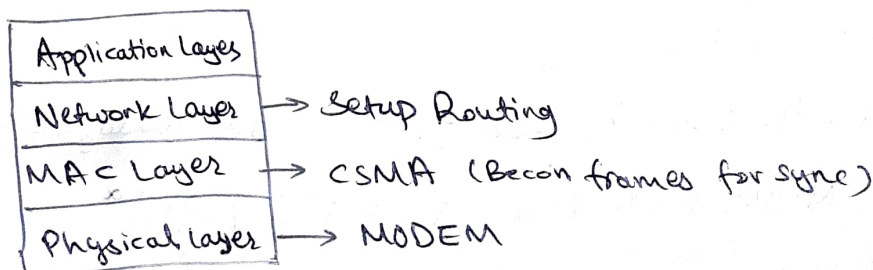 Application Layes
Network Layer → Setup Routing
MAC Layer → CSMA (Becon frames for sync)
Physical layer → MODEM